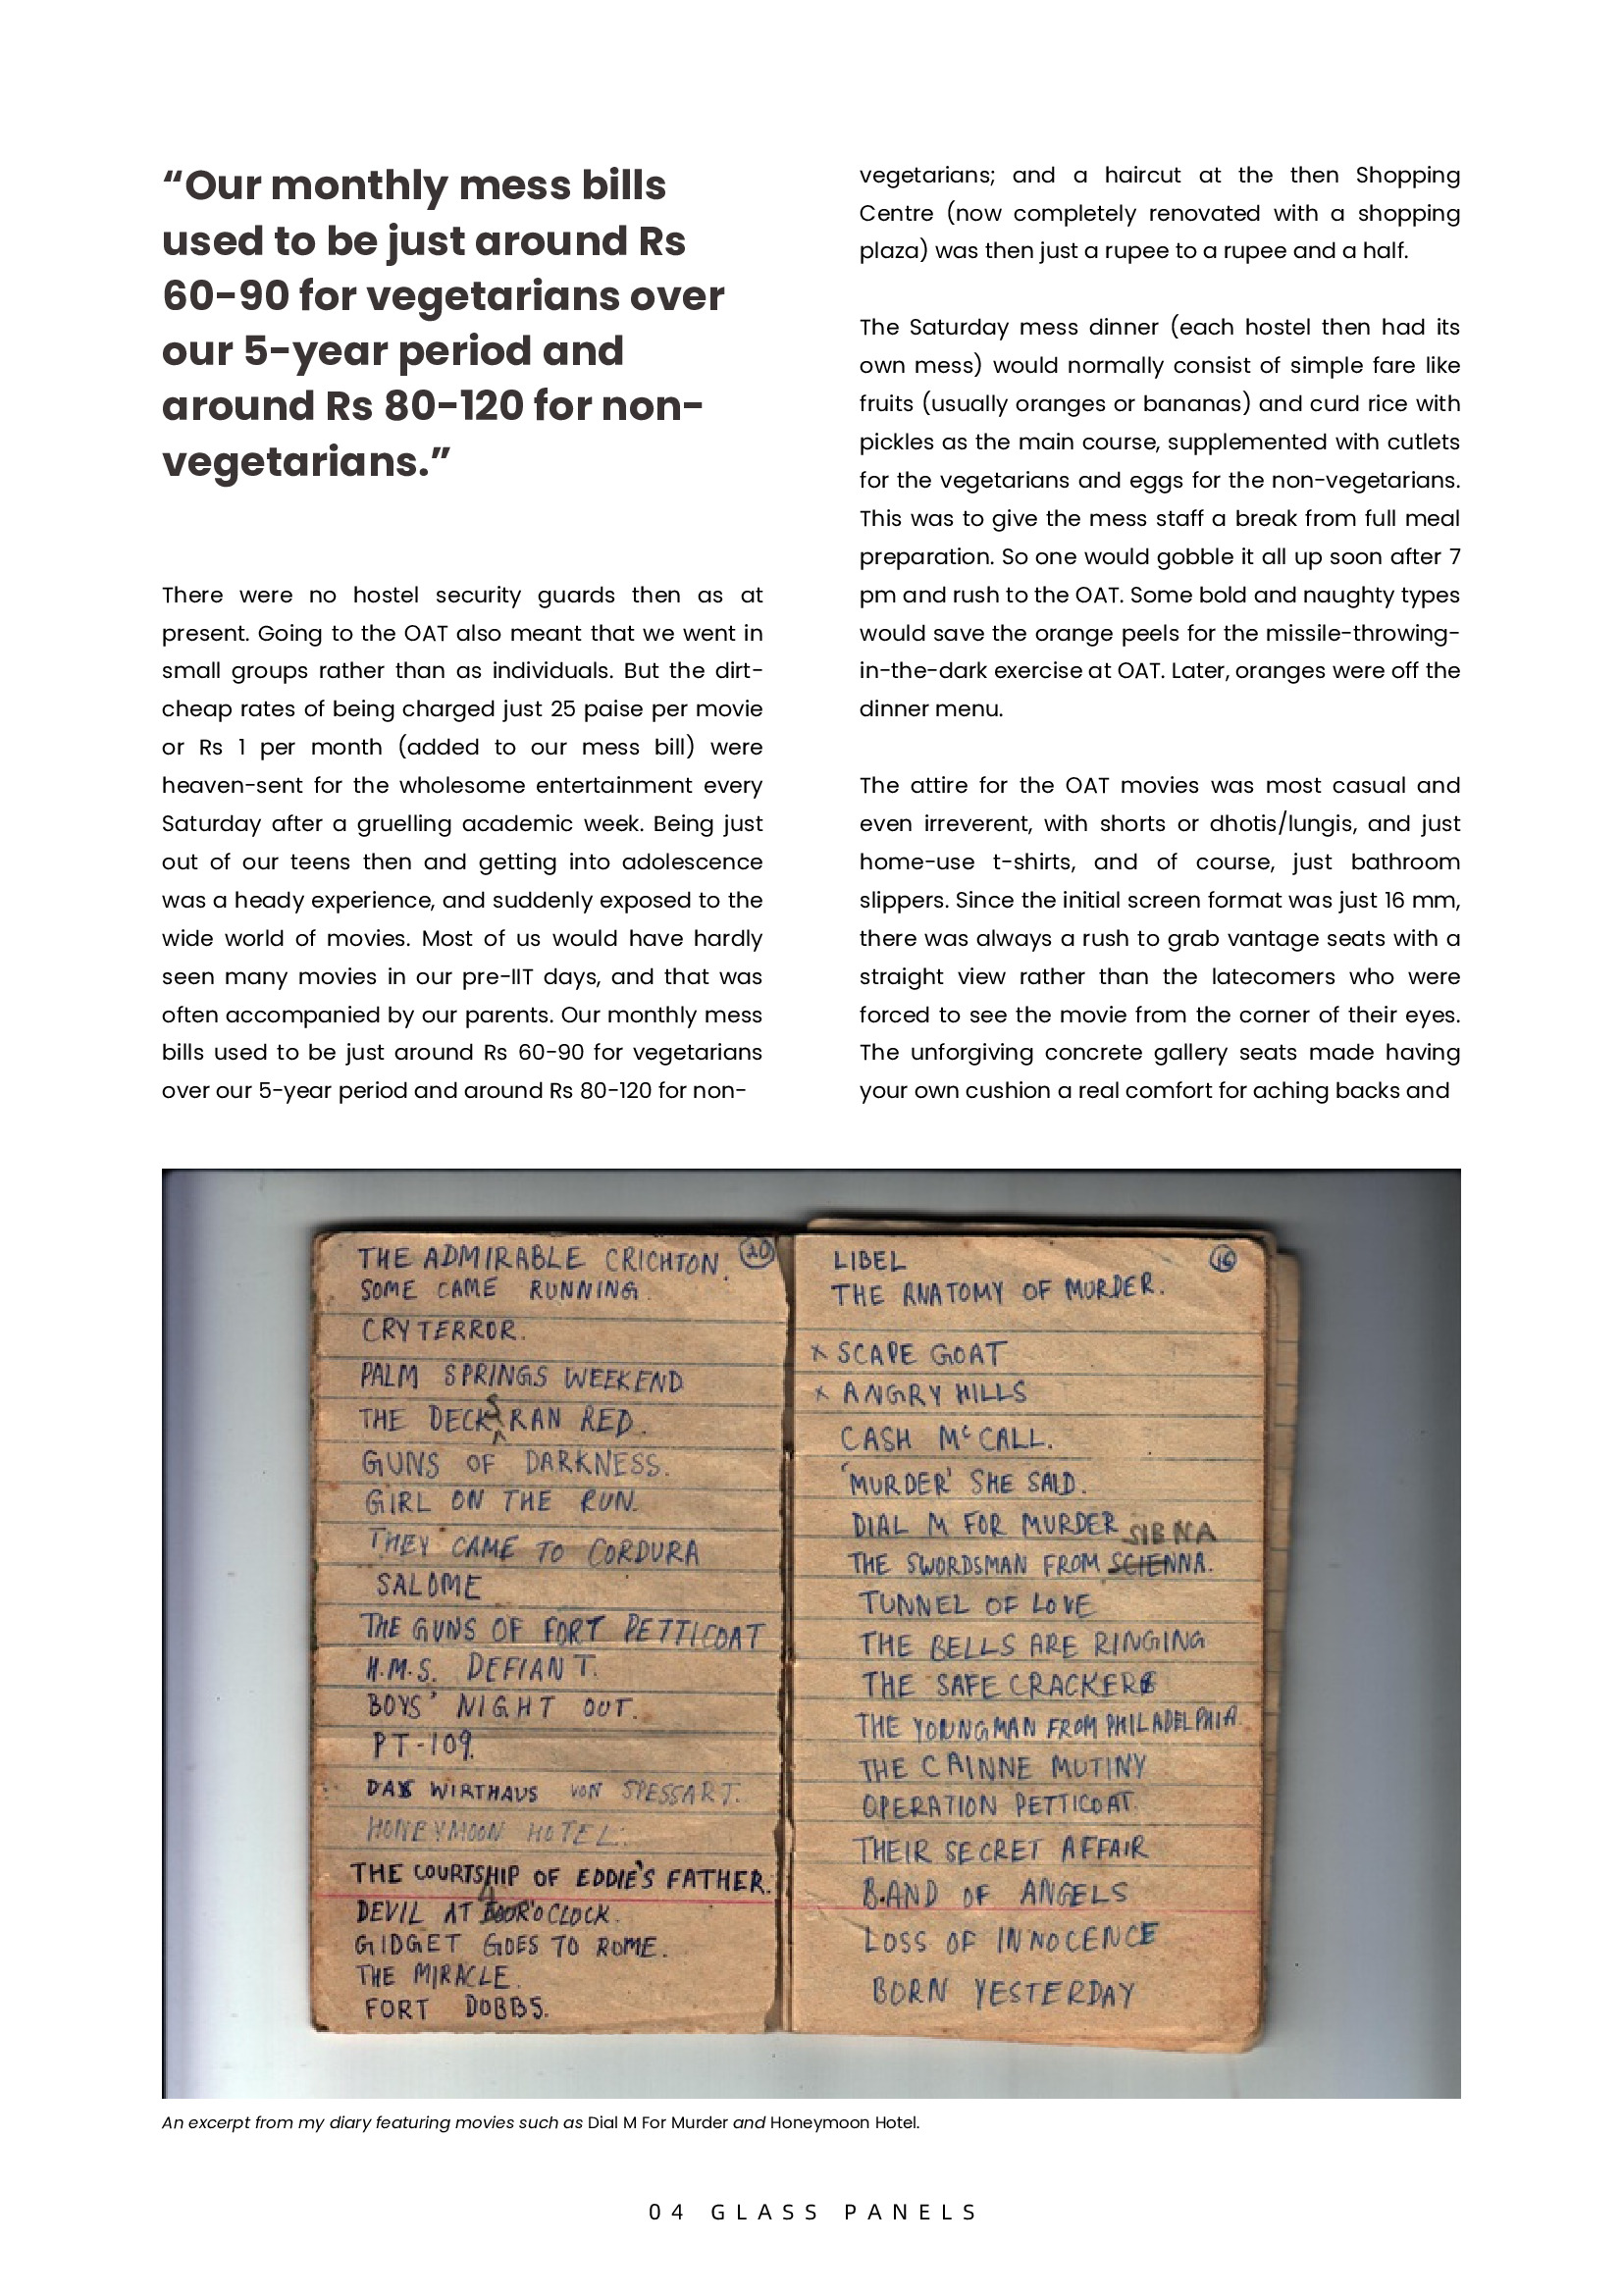 “Our monthly mess bills
used to be just around Rs
60-90 for vegetarians over
our 5-year period and
around Rs 80-120 for non-
vegetarians.”
There were no hostel security guards then as at
present. Going to the OAT also meant that we went in
small groups rather than as individuals. But the dirt-
cheap rates of being charged just 25 paise per movie
or Rs 1 per month (added to our mess bill) were
heaven-sent for the wholesome entertainment every
Saturday after a gruelling academic week. Being just
out of our teens then and getting into adolescence
was a heady experience, and suddenly exposed to the
wide world of movies. Most of us would have hardly
seen many movies in our pre-IIT days, and that was
often accompanied by our parents. Our monthly mess
bills used to be just around Rs 60-90 for vegetarians
over our 5-year period and around Rs 80-120 for non-
vegetarians; and a haircut at the then Shopping
Centre (now completely renovated with a shopping
plaza) was then just a rupee to a rupee and a half.
The Saturday mess dinner (each hostel then had its
own mess) would normally consist of simple fare like
fruits (usually oranges or bananas) and curd rice with
pickles as the main course, supplemented with cutlets
for the vegetarians and eggs for the non-vegetarians.
This was to give the mess staff a break from full meal
preparation. So one would gobble it all up soon after 7
pm and rush to the OAT. Some bold and naughty types
would save the orange peels for the missile-throwing-
in-the-dark exercise at OAT. Later, oranges were off the
dinner menu.
The attire for the OAT movies was most casual and
even irreverent, with shorts or dhotis/lungis, and just
home-use t-shirts, and of course, just bathroom
slippers. Since the initial screen format was just 16 mm,
there was always a rush to grab vantage seats with a
straight view rather than the latecomers who were
forced to see the movie from the corner of their eyes.
The unforgiving concrete gallery seats made having
your own cushion a real comfort for aching backs and
THE ADMIRABLE CRICHTON. 20
SOME CAME RUNNING.
CRY TERROR.
PALM SPRINGS WEEKEND
THE DECKS RAN RED.
GUNS OF DARKNESS.
GIRL ON THE RUN.
THEY CAME TO CORDURA
SALOME
THE GUNS OF FORT PETTICOAT
H.M.S. DEFIANT.
BOYS' NIGHT OUT.
PT-109.
DAS WIRTHAUS VON SPESSART.
HONEYMOON HOTEL.
THE COURTSHIP OF EDDIE'S FATHER.
DEVIL AT 4 O'CLOCK.
GIDGET GOES TO ROME.
THE MIRACLE.
FORT DOBBS.
LIBEL 16
THE ANATOMY OF MURDER.
x SCAPE GOAT
x ANGRY HILLS
CASH McCALL.
'MURDER' SHE SAID.
DIAL M FOR MURDER
SIENA
THE SWORDSMAN FROM SCIENNA.
TUNNEL OF LOVE
THE BELLS ARE RINGING
THE SAFE CRACKER
THE YOUNG MAN FROM PHILADELPHIA.
THE CAINNE MUTINY
OPERATION PETTICOAT.
THEIR SECRET AFFAIR
BAND OF ANGELS
LOSS OF INNOCENCE
BORN YESTERDAY
An excerpt from my diary featuring movies such as Dial M For Murder and Honeymoon Hotel.
04 GLASS PANELS